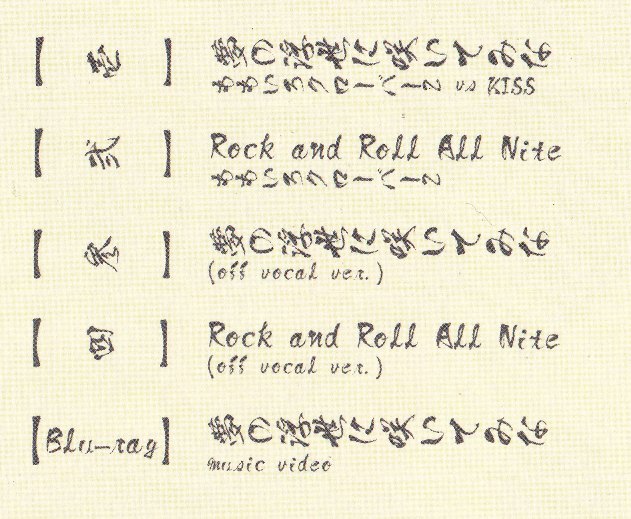 【壱】 夢の浮世に咲いてみな
ももいろクローバーZ vs KISS
【弐】 Rock and Roll All Nite
ももいろクローバーZ
【参】 夢の浮世に咲いてみな
(off vocal ver.)
【四】 Rock and Roll All Nite
(off vocal ver.)
【Blu-ray】 夢の浮世に咲いてみな
music video